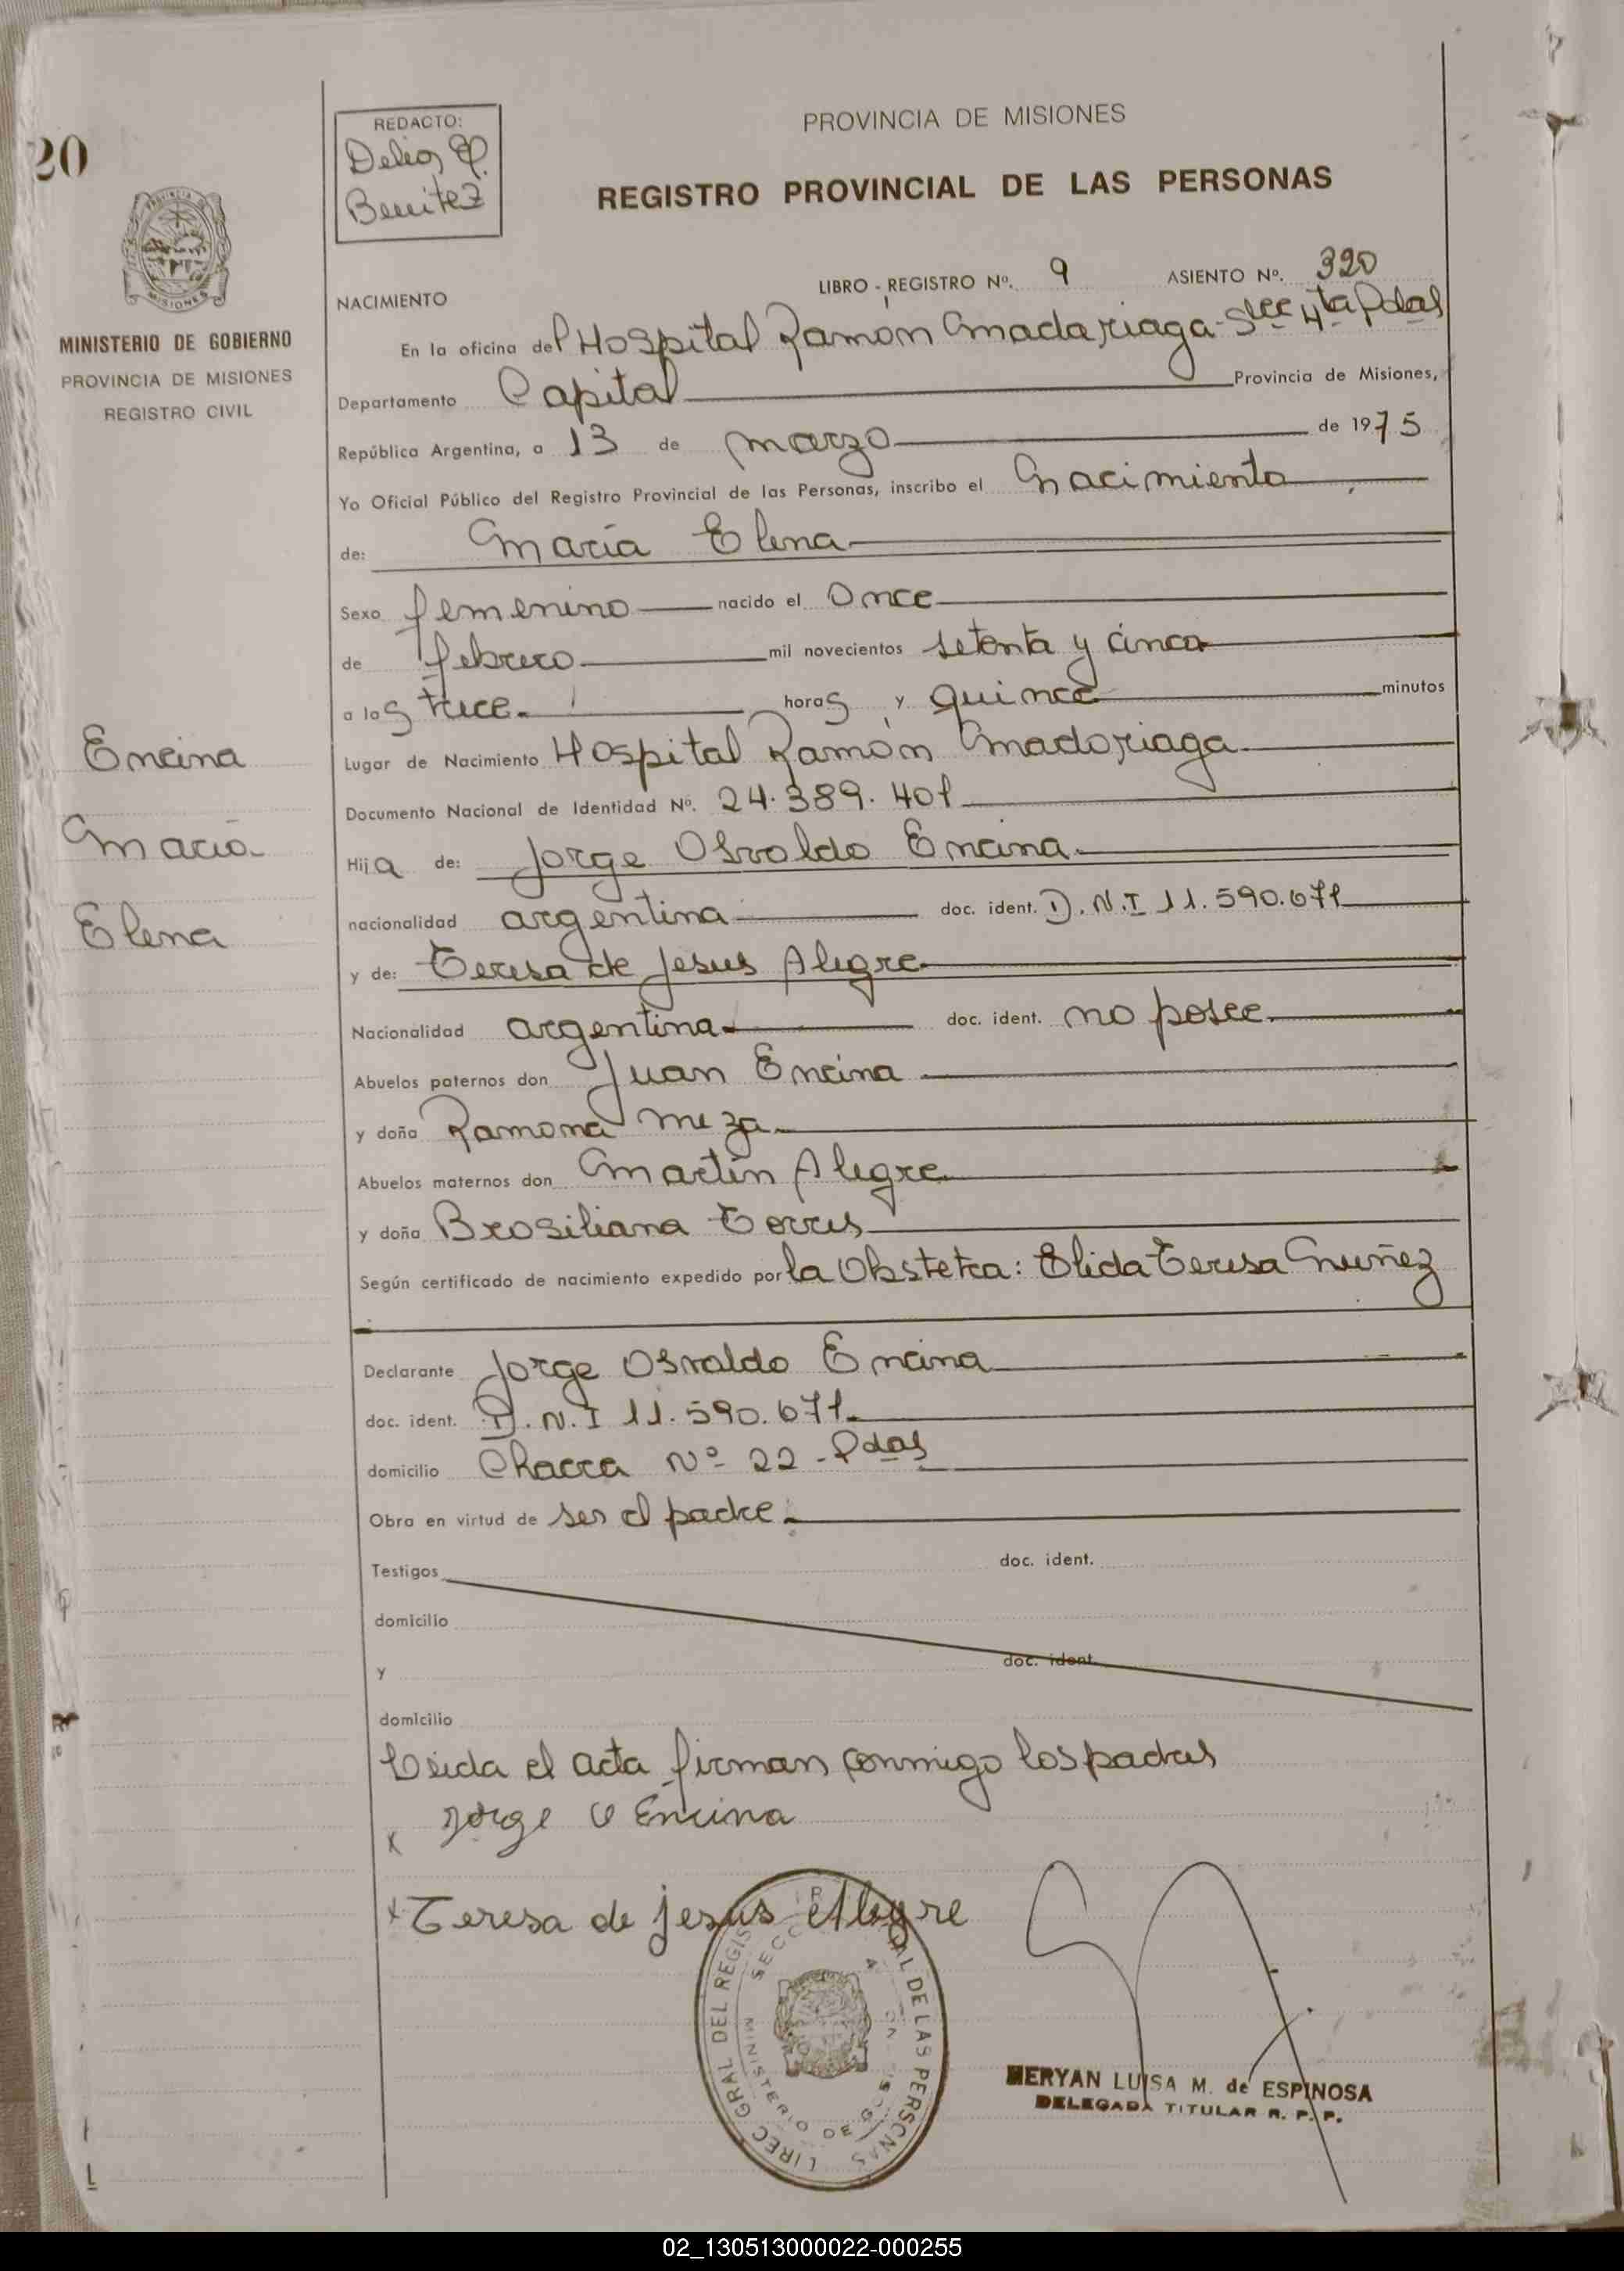 20
REDACTO:
Delia
Benitez
PROVINCIA DE MISIONES
REGISTRO PROVINCIAL DE LAS PERSONAS
MISIONES
MINISTERIO DE GOBIERNO
PROVINCIA DE MISIONES
REGISTRO CIVIL
LIBRO - REGISTRO Nº. 9 ASIENTO Nº. 320
NACIMIENTO
En la oficina del Hospital Ramón Madariaga - Secc 4ta Pdas
Departamento Capital Provincia de Misiones,
República Argentina, a 13 de marzo de 1975
Yo Oficial Público del Registro Provincial de las Personas, inscribo el Nacimiento
de: María Elena
Sexo femenino nacido el Once
de febrero mil novecientos setenta y cinco
a las trece horas y quince minutos
Lugar de Nacimiento Hospital Ramón Madariaga
Documento Nacional de Identidad Nº. 24.389.401
Hija de: Jorge Osvaldo Encina
nacionalidad argentina doc. ident. D.N.I 11.590.671
y de: Teresa de Jesus Alegre
Nacionalidad argentina doc. ident. no posee
Abuelos paternos don Juan Encina
y doña Ramona Meza
Abuelos maternos don Martín Alegre
y doña Brasiliana Torres
Según certificado de nacimiento expedido por la Obstetra: Elida Teresa Nuñez
Declarante Jorge Osvaldo Encina
doc. ident. D.N.I 11.590.671
domicilio Chacra Nº 22 - Pdas
Obra en virtud de ser el padre.
Testigos doc. ident.
domicilio
y doc. ident.
domicilio
Leida el acta firman conmigo los padres
x Jorge O Encina
x Teresa de jesus Alegre
Encina
María
Elena
DIREC GRAL DEL REGIS DE LAS PERSONAS
MINISTERIO DE
MERYAN LUISA M. de ESPINOSA
DELEGADA TITULAR R. P. P.
02_130513000022-000255